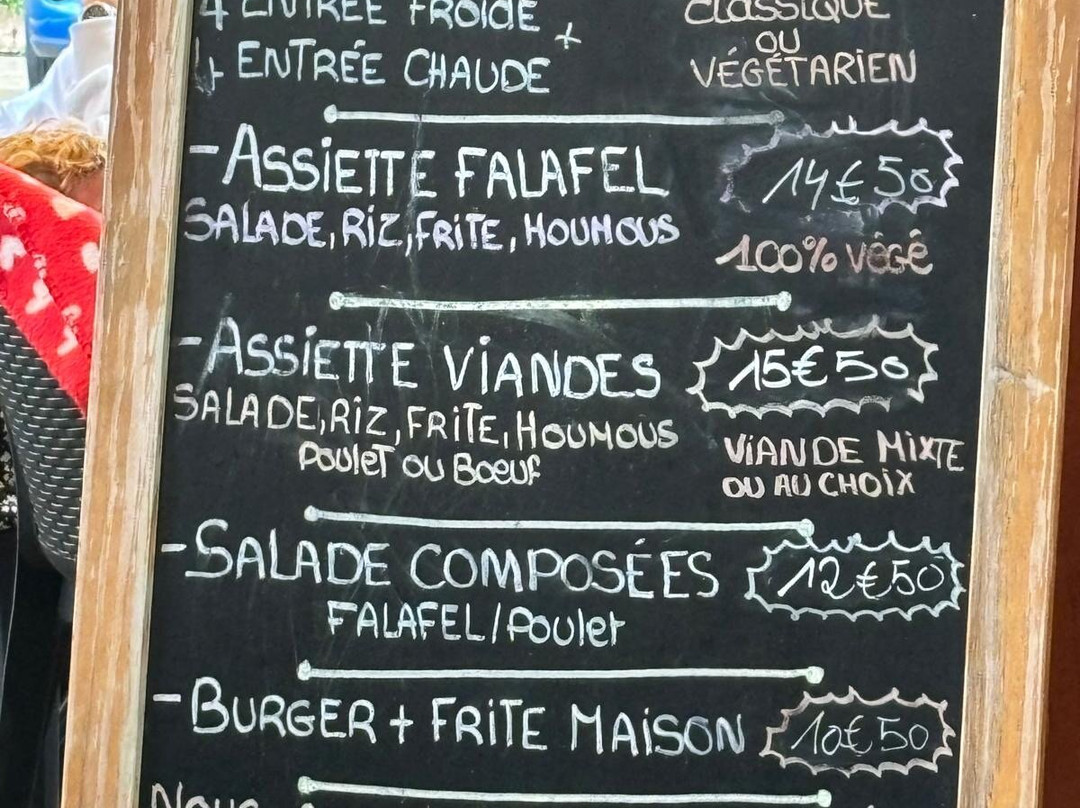 4 ENTRÉE FROIDE +
4 ENTRÉE CHAUDE
CLASSIQUE
OU
VÉGÉTARIEN
- ASSIETTE FALAFEL 14€50
SALADE, RIZ, FRITE, HOUMOUS
100% VÉGÉ
- ASSIETTE VIANDES 15€50
SALADE, RIZ, FRITE, HOUMOUS
POULET OU BOEUF
VIANDE MIXTE
OU AU CHOIX
- SALADE COMPOSÉES 12€50
FALAFEL/POULET
- BURGER + FRITE MAISON 10€50
NOUS